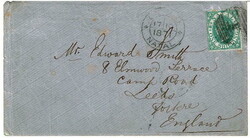 1871
NATAL
Mr. Edward Smith
8 Elmwood Terrace
Camp Road
Leeds
Yorks.
England